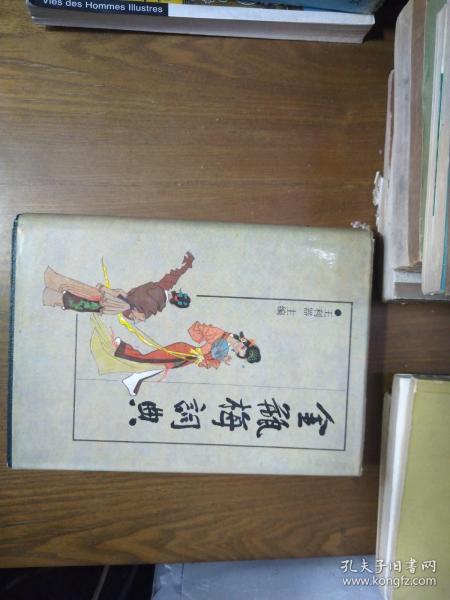 Vies des Hommes Illustres
金瓶梅詞典
●王利器 主編
孔夫子旧书网
www.kongfz.com